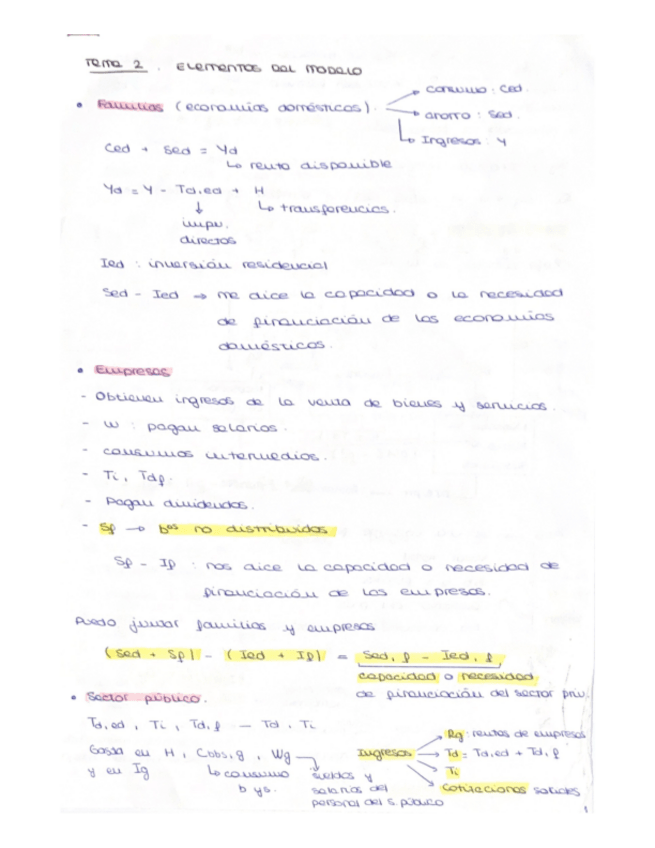 Tema 2. Elementos del modelo
• Familias (economías domésticas). → consumo: Ced.
→ ahorro: Sed.
↳ Ingresos: Y
Ced + Sed = Yd
↳ renta disponible
Yd = Y - Td,ed + H
↓ ↳ transferencias.
impu.
directos
Ied: inversión residencial
Sed - Ied → me dice la capacidad o la necesidad
de financiación de las economías
domésticas.
• Empresas
- Obtienen ingresos de la venta de bienes y servicios.
- W: pagan salarios.
- consumos intermedios.
- Ti, Tdf.
- Pagan dividendos.
- Sf → bos no distribuidos
Sf - If: nos dice la capacidad o necesidad de
financiación de las empresas.
Puedo juntar familias y empresas
(Sed + Sf) - (Ied + If) = Sed,f - Ied,f
capacidad o necesidad
de financiación del sector priv.
• Sector público.
Td,ed, Ti, Td,f — Td, Ti
Gasta en H, Cbbs,g, Wg
y en Ig ↳ consumo
b y s.
sueldos y
salarios del
personal del s. público
Ingresos → Rg: rentas de empresas
→ Td = Td,ed + Td,f
→ Ti
→ Cotizaciones sociales
1